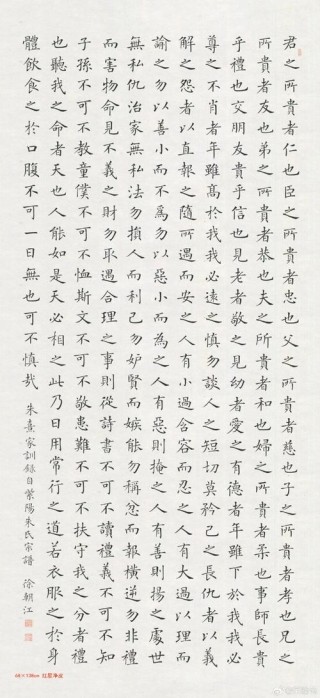 君之所貴者仁也臣之所貴者忠也父之所貴者慈也子之所貴者孝也兄之
所貴者友也弟之所貴者恭也夫之所貴者和也婦之所貴者柔也事師長貴
乎禮也交朋友貴乎信也見老者敬之見幼者愛之有德者年雖下於我我必
尊之不肖者年雖高於我我必遠之慎勿談人之短切莫矜己之長仇者以義
解之怨者以直報之隨所遇而安之人有小過含容而忍之人有大過以理而
諭之勿以善小而不為勿以惡小而為之人有惡則掩之人有善則揚之處世
無私仇治家無私法勿損人而利己勿妒賢而嫉能勿稱忿而報橫逆勿非禮
而害物命見不義之財勿取遇合理之事則從詩書不可不讀禮義不可不知
子孫不可不教童僕不可不恤斯文不可不敬患難不可不扶守我之分者禮
也聽我之命者天也人能如是天必相之此乃日用常行之道若衣服之於身
體飲食之於口腹不可一日無也可不慎哉 朱熹家訓錄自紫陽朱氏宗譜 徐朝江